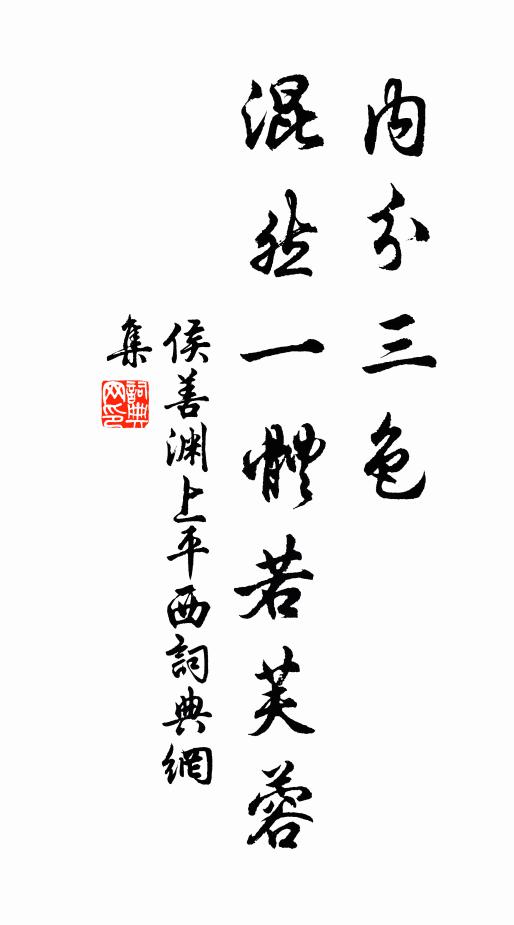 内分三色
混然一體若芙蓉
侯善渊上平西詞典網
集
詞典网印